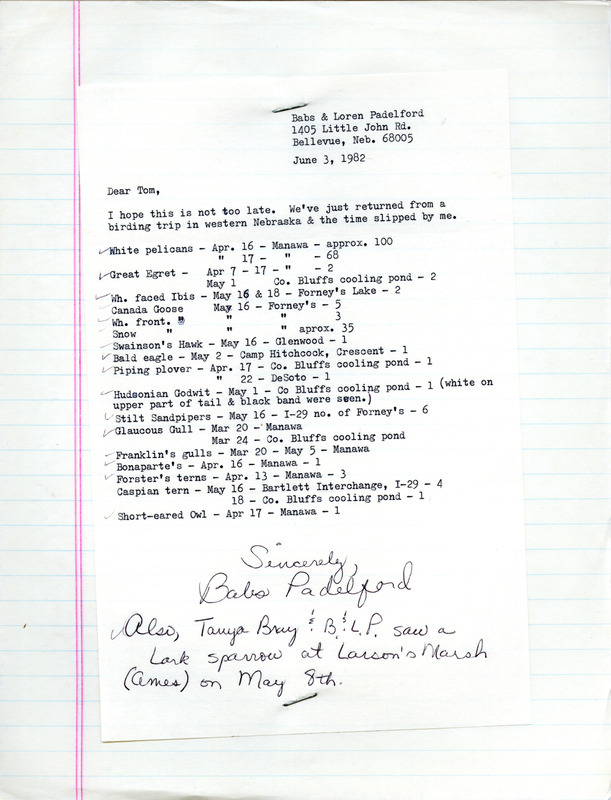 Babs & Loren Padelford
1405 Little John Rd.
Bellevue, Neb. 68005
June 3, 1982
Dear Tom,
I hope this is not too late. We've just returned from a
birding trip in western Nebraska & the time slipped by me.
White pelicans - Apr. 16 - Manawa - approx. 100
" 17 - " - 68
Great Egret - Apr 7 - 17 - " - 2
May 1 Co. Bluffs cooling pond - 2
Wh. faced Ibis - May 16 & 18 - Forney's Lake - 2
Canada Goose May 16 - Forney's - 5
Wh. front. " " " 3
Snow " " " aprox. 35
Swainson's Hawk - May 16 - Glenwood - 1
Bald eagle - May 2 - Camp Hitchcock, Crescent - 1
Piping plover - Apr. 17 - Co. Bluffs cooling pond - 1
" 22 - DeSoto - 1
Hudsonian Godwit - May 1 - Co Bluffs cooling pond - 1 (white on
upper part of tail & black band were seen.)
Stilt Sandpipers - May 16 - I-29 no. of Forney's - 6
Glaucous Gull - Mar 20 - Manawa
Mar 24 - Co. Bluffs cooling pond
Franklin's gulls - Mar 20 - May 5 - Manawa
Bonaparte's - Apr. 16 - Manawa - 1
Forster's terns - Apr. 13 - Manawa - 3
Caspian tern - May 16 - Bartlett Interchange, I-29 - 4
18 - Co. Bluffs cooling pond - 1
Short-eared Owl - Apr 17 - Manawa - 1
Sincerely,
Babs Padelford
Also, Tanya Bray & B. & L.P. saw a
Lark sparrow at Larson's Marsh
(Ames) on May 8th.